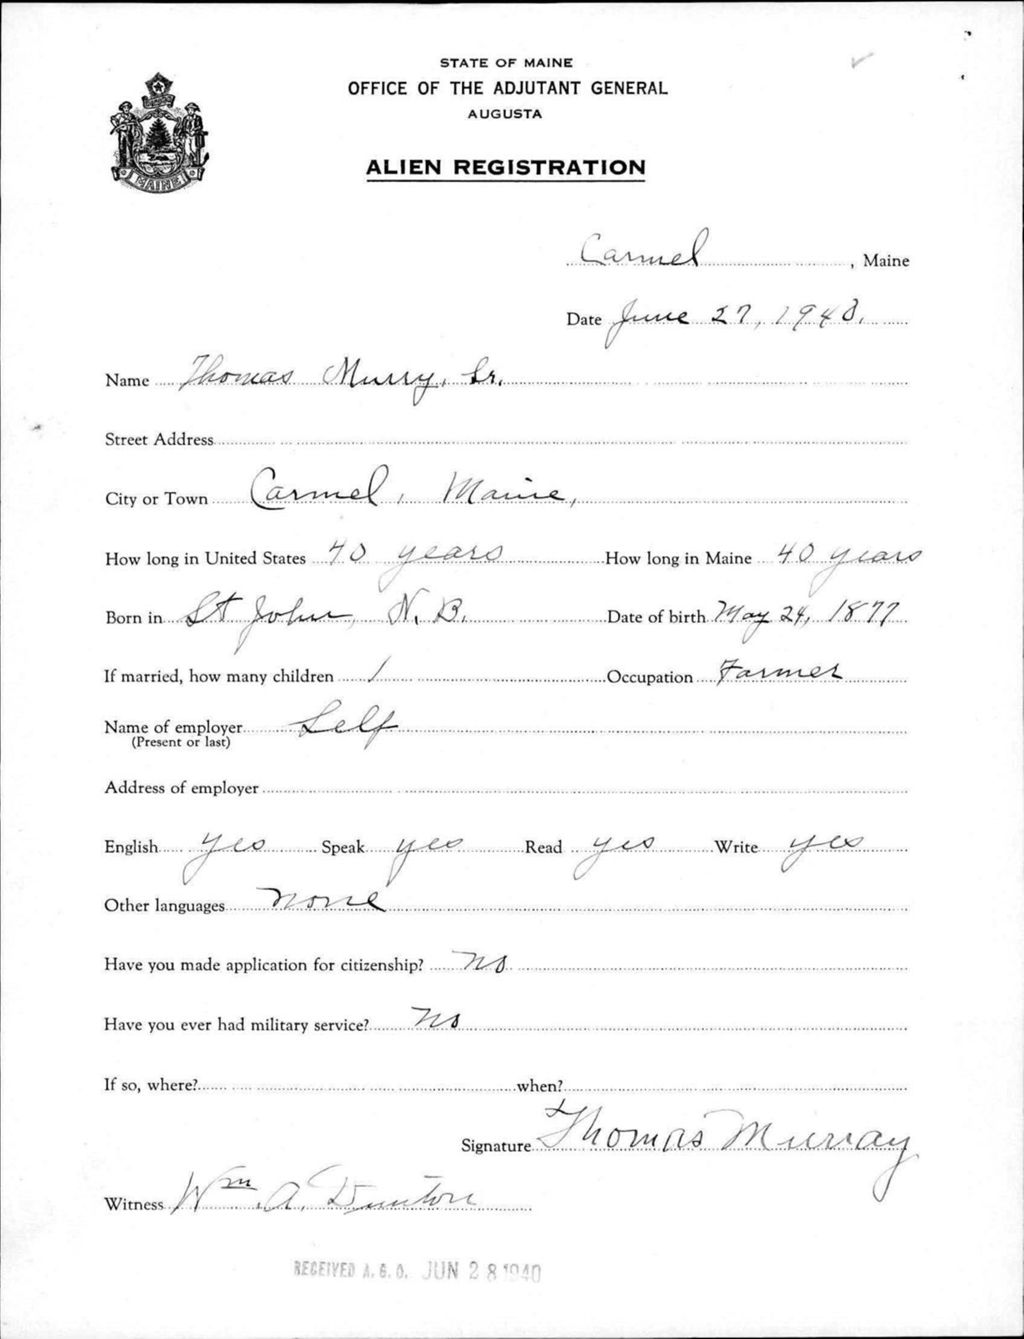 STATE OF MAINE
OFFICE OF THE ADJUTANT GENERAL
AUGUSTA
ALIEN REGISTRATION
MAINE
Carmel, Maine
Date June 27, 1940.
Name Thomas Murry, Sr.
Street Address
City or Town Carmel, Maine,
How long in United States 40 years How long in Maine 40 years
Born in St John, N. B. Date of birth May 24, 1877
If married, how many children 1 Occupation Farmer
Name of employer Self
(Present or last)
Address of employer
English yes Speak yes Read yes Write yes
Other languages none
Have you made application for citizenship? no
Have you ever had military service? no
If so, where? when?
Signature Thomas Murray
Witness Wm. A. Dunton
RECEIVED A. G. O. JUN 28 1940